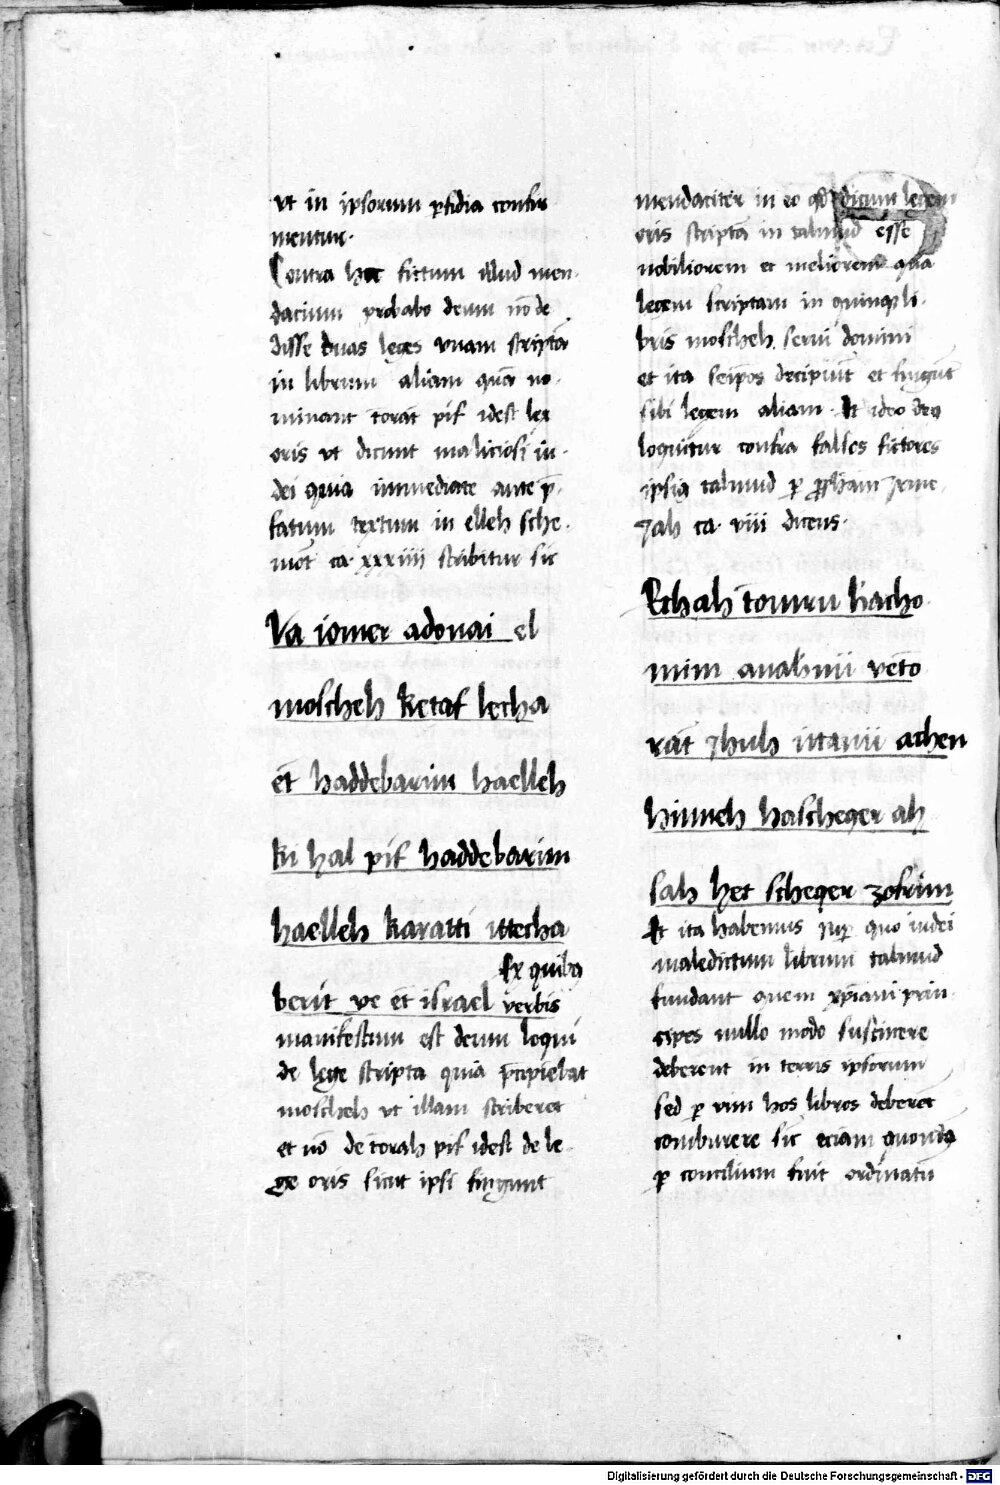 vt in ipsorum pfidia confir
mentur.
Contra hoc fictum illud men-
dacium probabo deum nō de
disse duas leges vnam scriptā
in librum aliam quā no-
minant torat pif idest lex
oris vt dicunt maliciosi iu-
dei quia immediate ante p̄-
fatum textum in elleh sche-
mot ca. xxxiiii scribitur sic
Va iomer adonai el
moscheh Ketaf lecha
et haddebarim haelleh
Ki hal pif haddebarim
haelleh Karatti ittecha
Ex quibꝫ
berit ve et israel verbis
manifestum est deum loqui
de lege scripta quia p̄cipiebat
moscheh vt illam scriberet
et nō de torah pif idest de le-
ge oris sicut ipsi fingunt
mendaciter in eo qd dicunt legem
oris scriptā in talmud esse
nobiliorem et meliorem quā
legem scriptam in quinqꝫ li-
bris moscheh serui domini
et ita seip̄os decipiūt et fingūt
sibi legem aliam. Et ideo deꝰ
loquitur contra falsos fictores
ipsiꝰ talmud ꝑ ꝓph̄am Jerme-
Jah ca. viii dicens.
Echah tomru hacho-
mim anahnu veto-
rat Jhuh ittanu achen
hinneh hascheqer ah
sah het scheqer zofrim
Et ita habemus ꝑ quo iudei
maledictum librum talmud
fundant quem xp̄iani prin-
cipes nullo modo sustinere
deberent in terris ipsorum
sed ꝑ vim hos libros deberet
comburere sic eciam quondā
ꝑ concilium fuit ordinatū
Digitalisierung gefördert durch die Deutsche Forschungsgemeinschaft - DFG